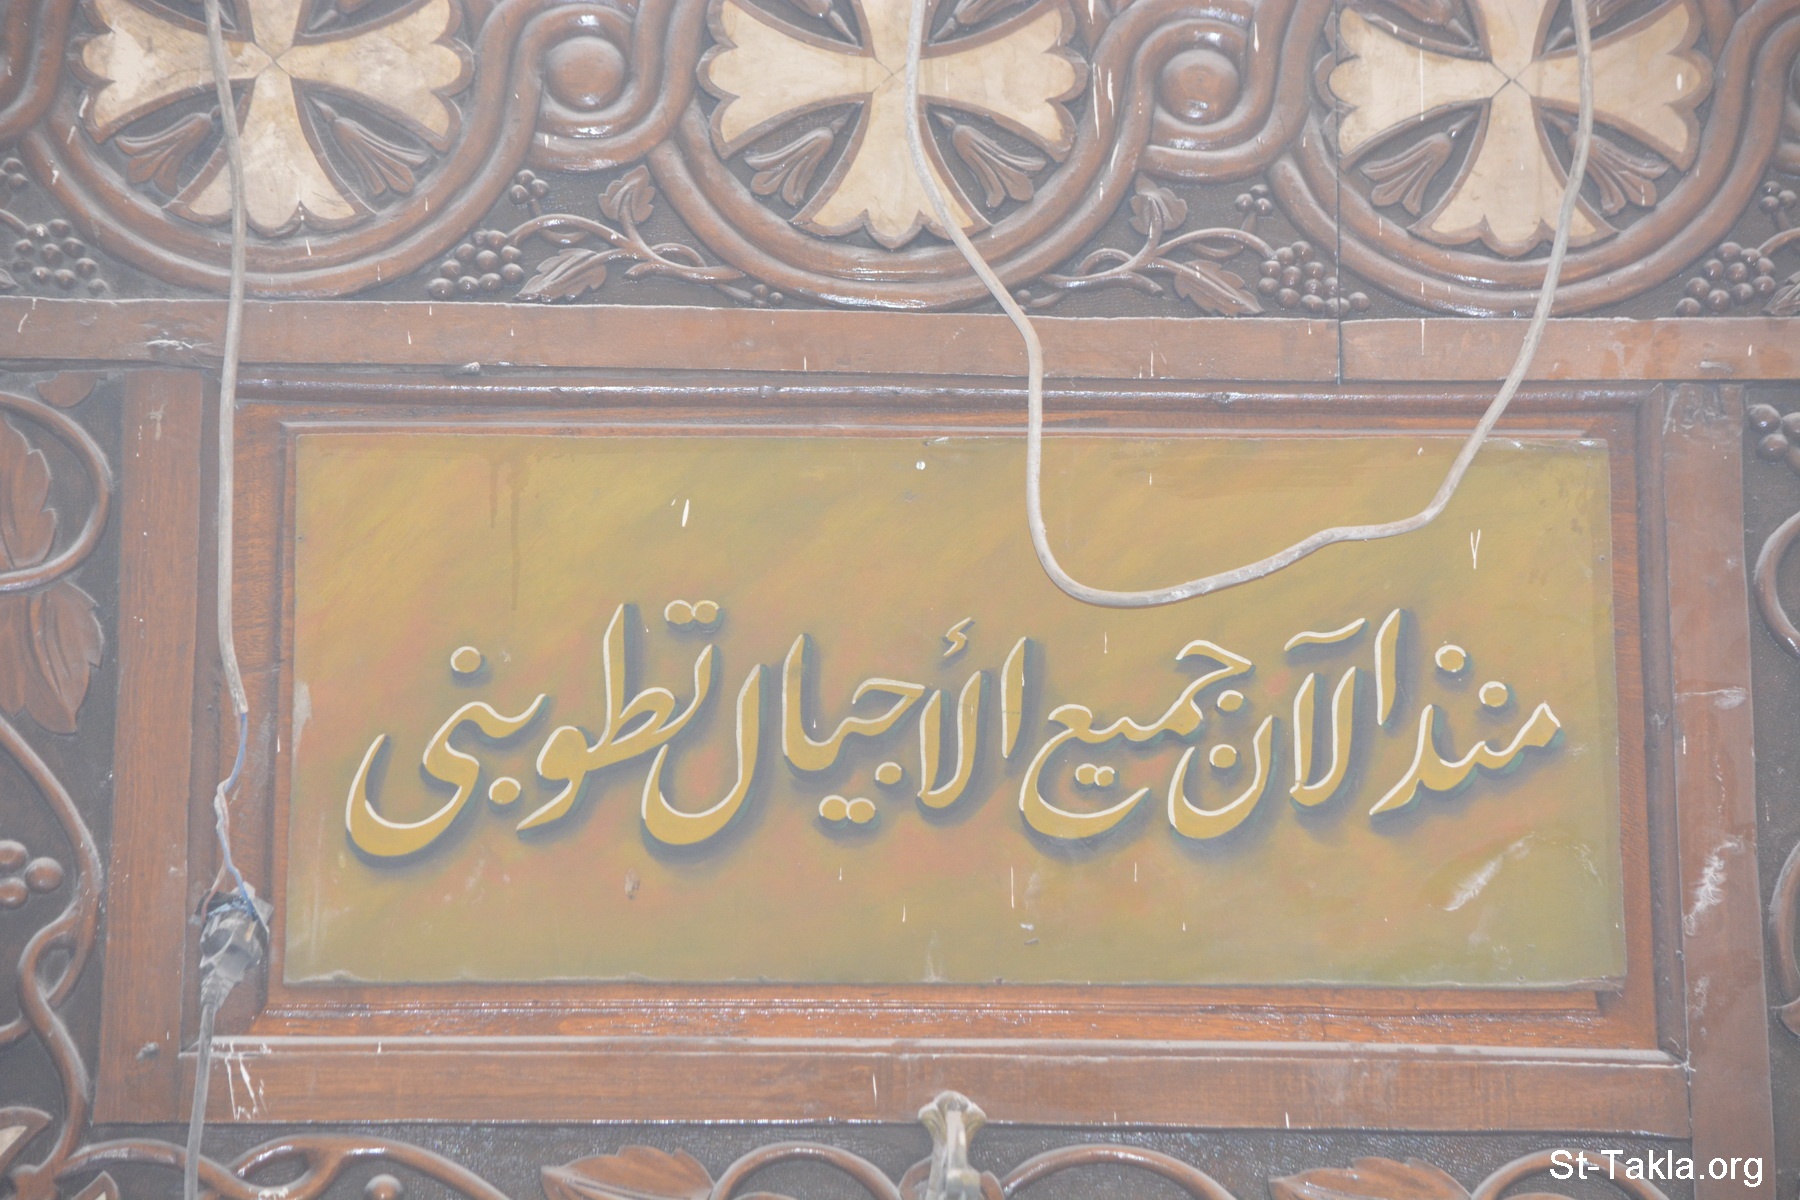 منذ الآن جميع الأجيال تطوبنى
St-Takla.org